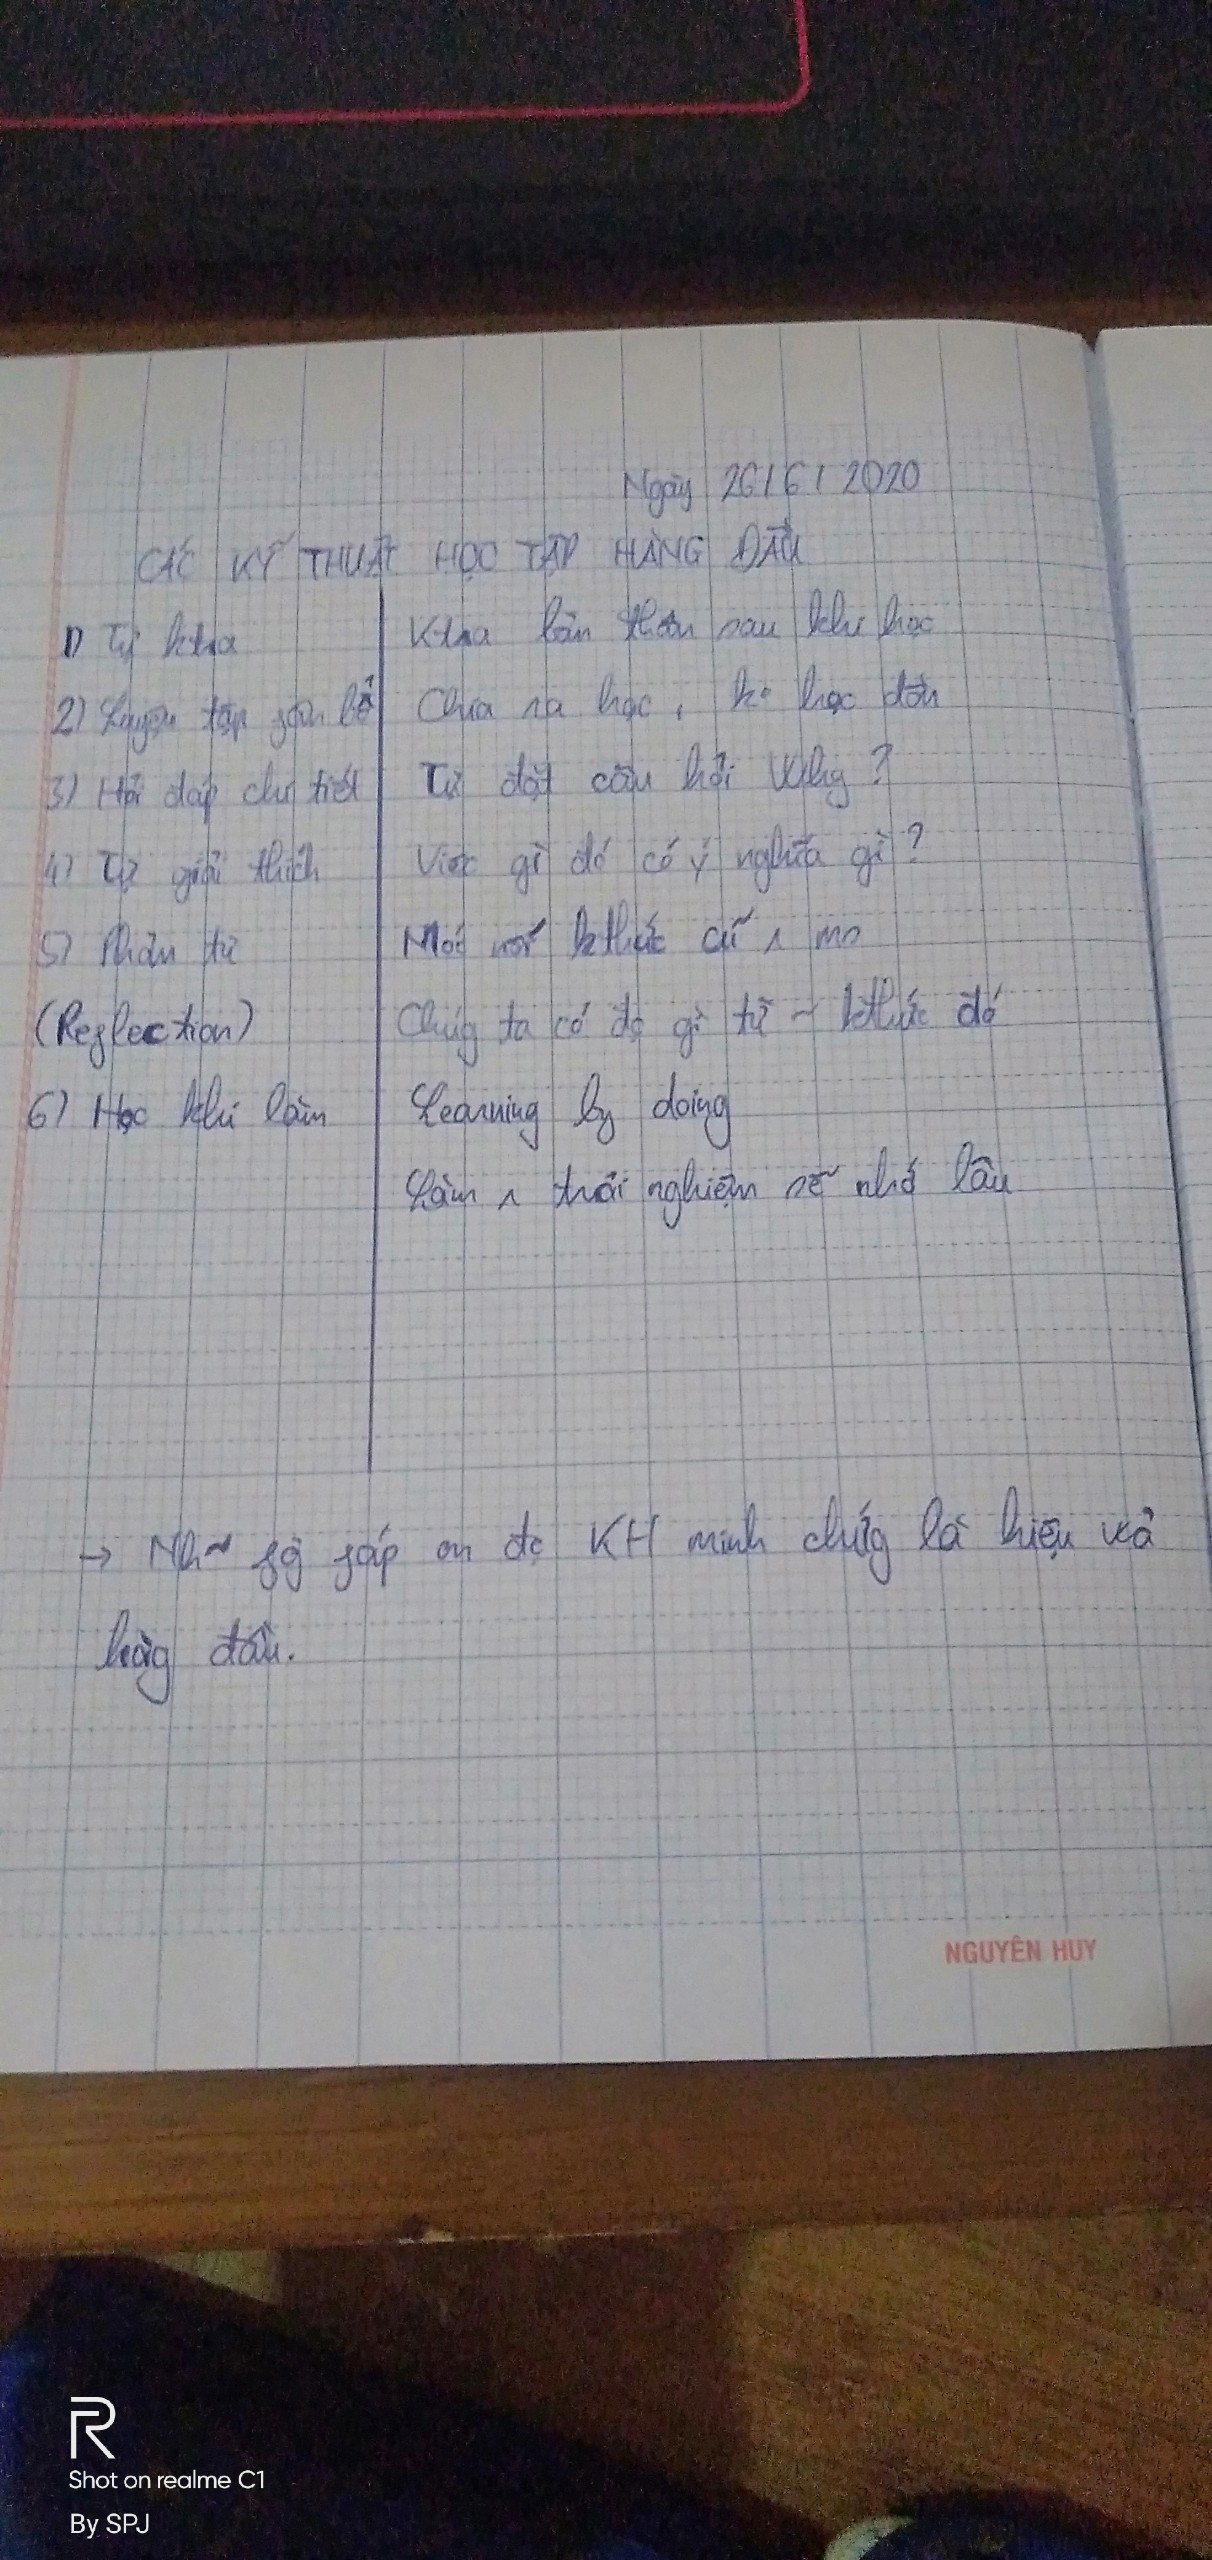 Ngày 26/6/2020
CÁC KỸ THUẬT HỌC TẬP HÀNG ĐẦU
1) Tự ktra
Ktra bản thân sau khi học
2) Luyện tập giãn bổ
Chia ra học, ko học dồn
3) Hỏi đáp chi tiết
Tự đặt câu hỏi Why?
4) Tự giải thích
Việc gì đó có ý nghĩa gì?
5) Phản tư
kthức cũ
(Reflection)
Chúg ta có đc gì từ ~ kthức đó
6) Học khi làm
Learning by doing
Làm trải nghiệm sẽ nhớ lâu
→ Nh~ đc KH minh chứg là hiệu kả
hàg đầu.
NGUYÊN HUY
R
Shot on realme C1
By SPJ